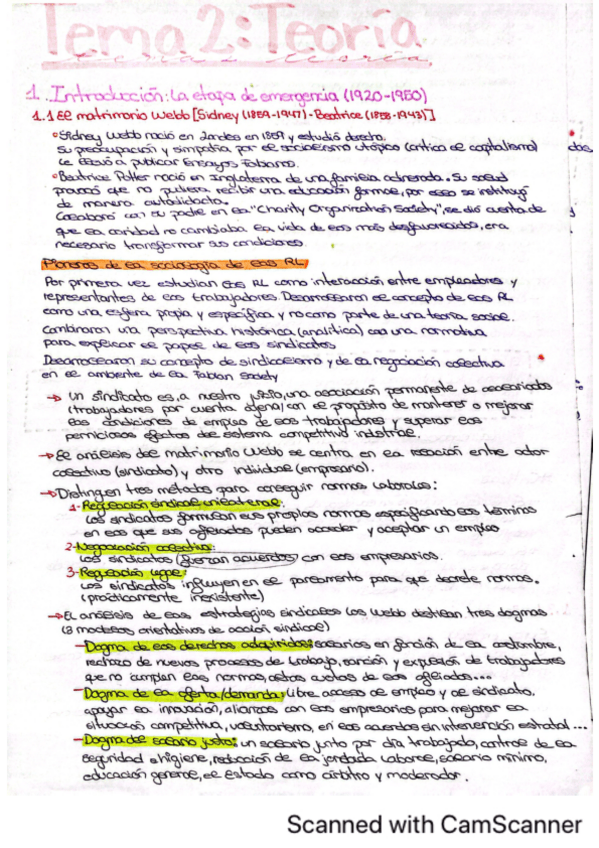 Tema 2: Teoría
1. Introducción: La etapa de emergencia (1920-1950)
1.1 El matrimonio Webb [Sidney (1859-1947) - Beatrice (1858-1943)]
Sidney Webb nació en Londres en 1859 y estudió derecho.
Su preocupación y simpatía por el socialismo utópico (crítica al capitalismo)
le llevó a publicar Ensayos Fabianos.
Beatrice Potter nació en Inglaterra de una familia adinerada. Su salud
provocó que no pudiera recibir una educación formal, por eso se instruyó
de manera autodidacta.
Colaboró con su padre en la "Charity Organization Society", se dió cuenta de
que la caridad no cambiaba la vida de los más desfavorecidos, era
necesario transformar sus condiciones.
Pioneros de la sociología de las RL
Por primera vez estudian las RL como interacción entre empleadores y
representantes de los trabajadores. Desarrollaron el concepto de las RL
como una esfera propia y específica y no como parte de una teoría social.
Combinaron una perspectiva histórica (analítica) con una normativa
para explicar el papel de los sindicatos
Desarrollaron su concepto de sindicalismo y de la negociación colectiva
en el ambiente de la Fabian Society
→ Un sindicato es, a nuestro juicio, una asociación permanente de asalariados
(trabajadores por cuenta ajena) con el propósito de mantener o mejorar
las condiciones de empleo de los trabajadores y superar los
perniciosos efectos del sistema competitivo industrial.
→ El análisis del matrimonio Webb se centra en la relación entre actor
colectivo (sindicato) y otro individual (empresario).
→ Distinguen tres métodos para conseguir normas laborales:
1- Regulación sindical unilateral:
Los sindicatos formulan sus propias normas especificando los términos
en los que sus afiliados pueden acceder y aceptar un empleo
2- Negociación colectiva:
Los sindicatos fuerzan acuerdos con los empresarios.
3- Regulación legal:
Los sindicatos influyen en el parlamento para que decrete normas.
(prácticamente inexistente)
→ El análisis de las estrategias sindicales los Webb destilan tres dogmas
(3 modelos orientativos de acción sindical)
- Dogma de los derechos adquiridos: salarios en función de la costumbre,
rechazo de nuevos procesos de trabajo, sanción y expulsión de trabajadores
que no cumplen las normas, altas cuotas de los afiliados...
- Dogma de la oferta/demanda: libre acceso al empleo y al sindicato,
apoyar la innovación, alianzas con los empresarios para mejorar la
situación competitiva, voluntarismo, en los acuerdos sin intervención estatal...
- Dogma del salario justo: un salario junto por día trabajado, control de la
seguridad e higiene, reducción de la jornada laboral, salario mínimo,
educación general, el Estado como árbitro y moderador.
Scanned with CamScanner